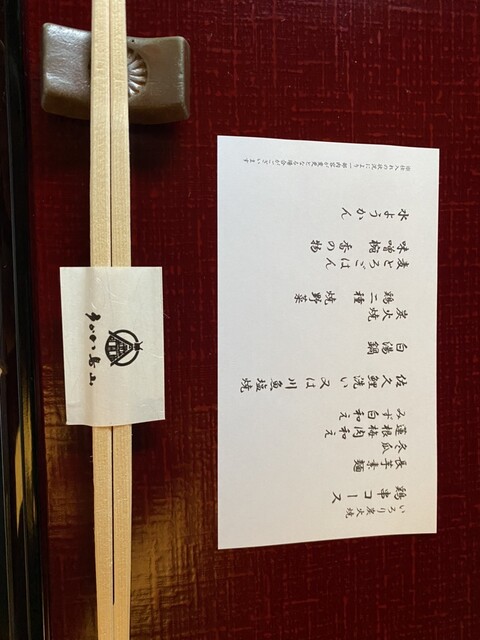 いろり炭火焼
鶏串コース
長芋素麺
冬瓜
蓮根梅肉和え
みず白和え
佐久鯉洗い 又は 川魚塩焼
白湯鍋
炭火焼 鶏二種 焼野菜
麦とろごはん
味噌椀 香の物
水ようかん
※仕入れの状況により一部内容が変更となる場合がございます